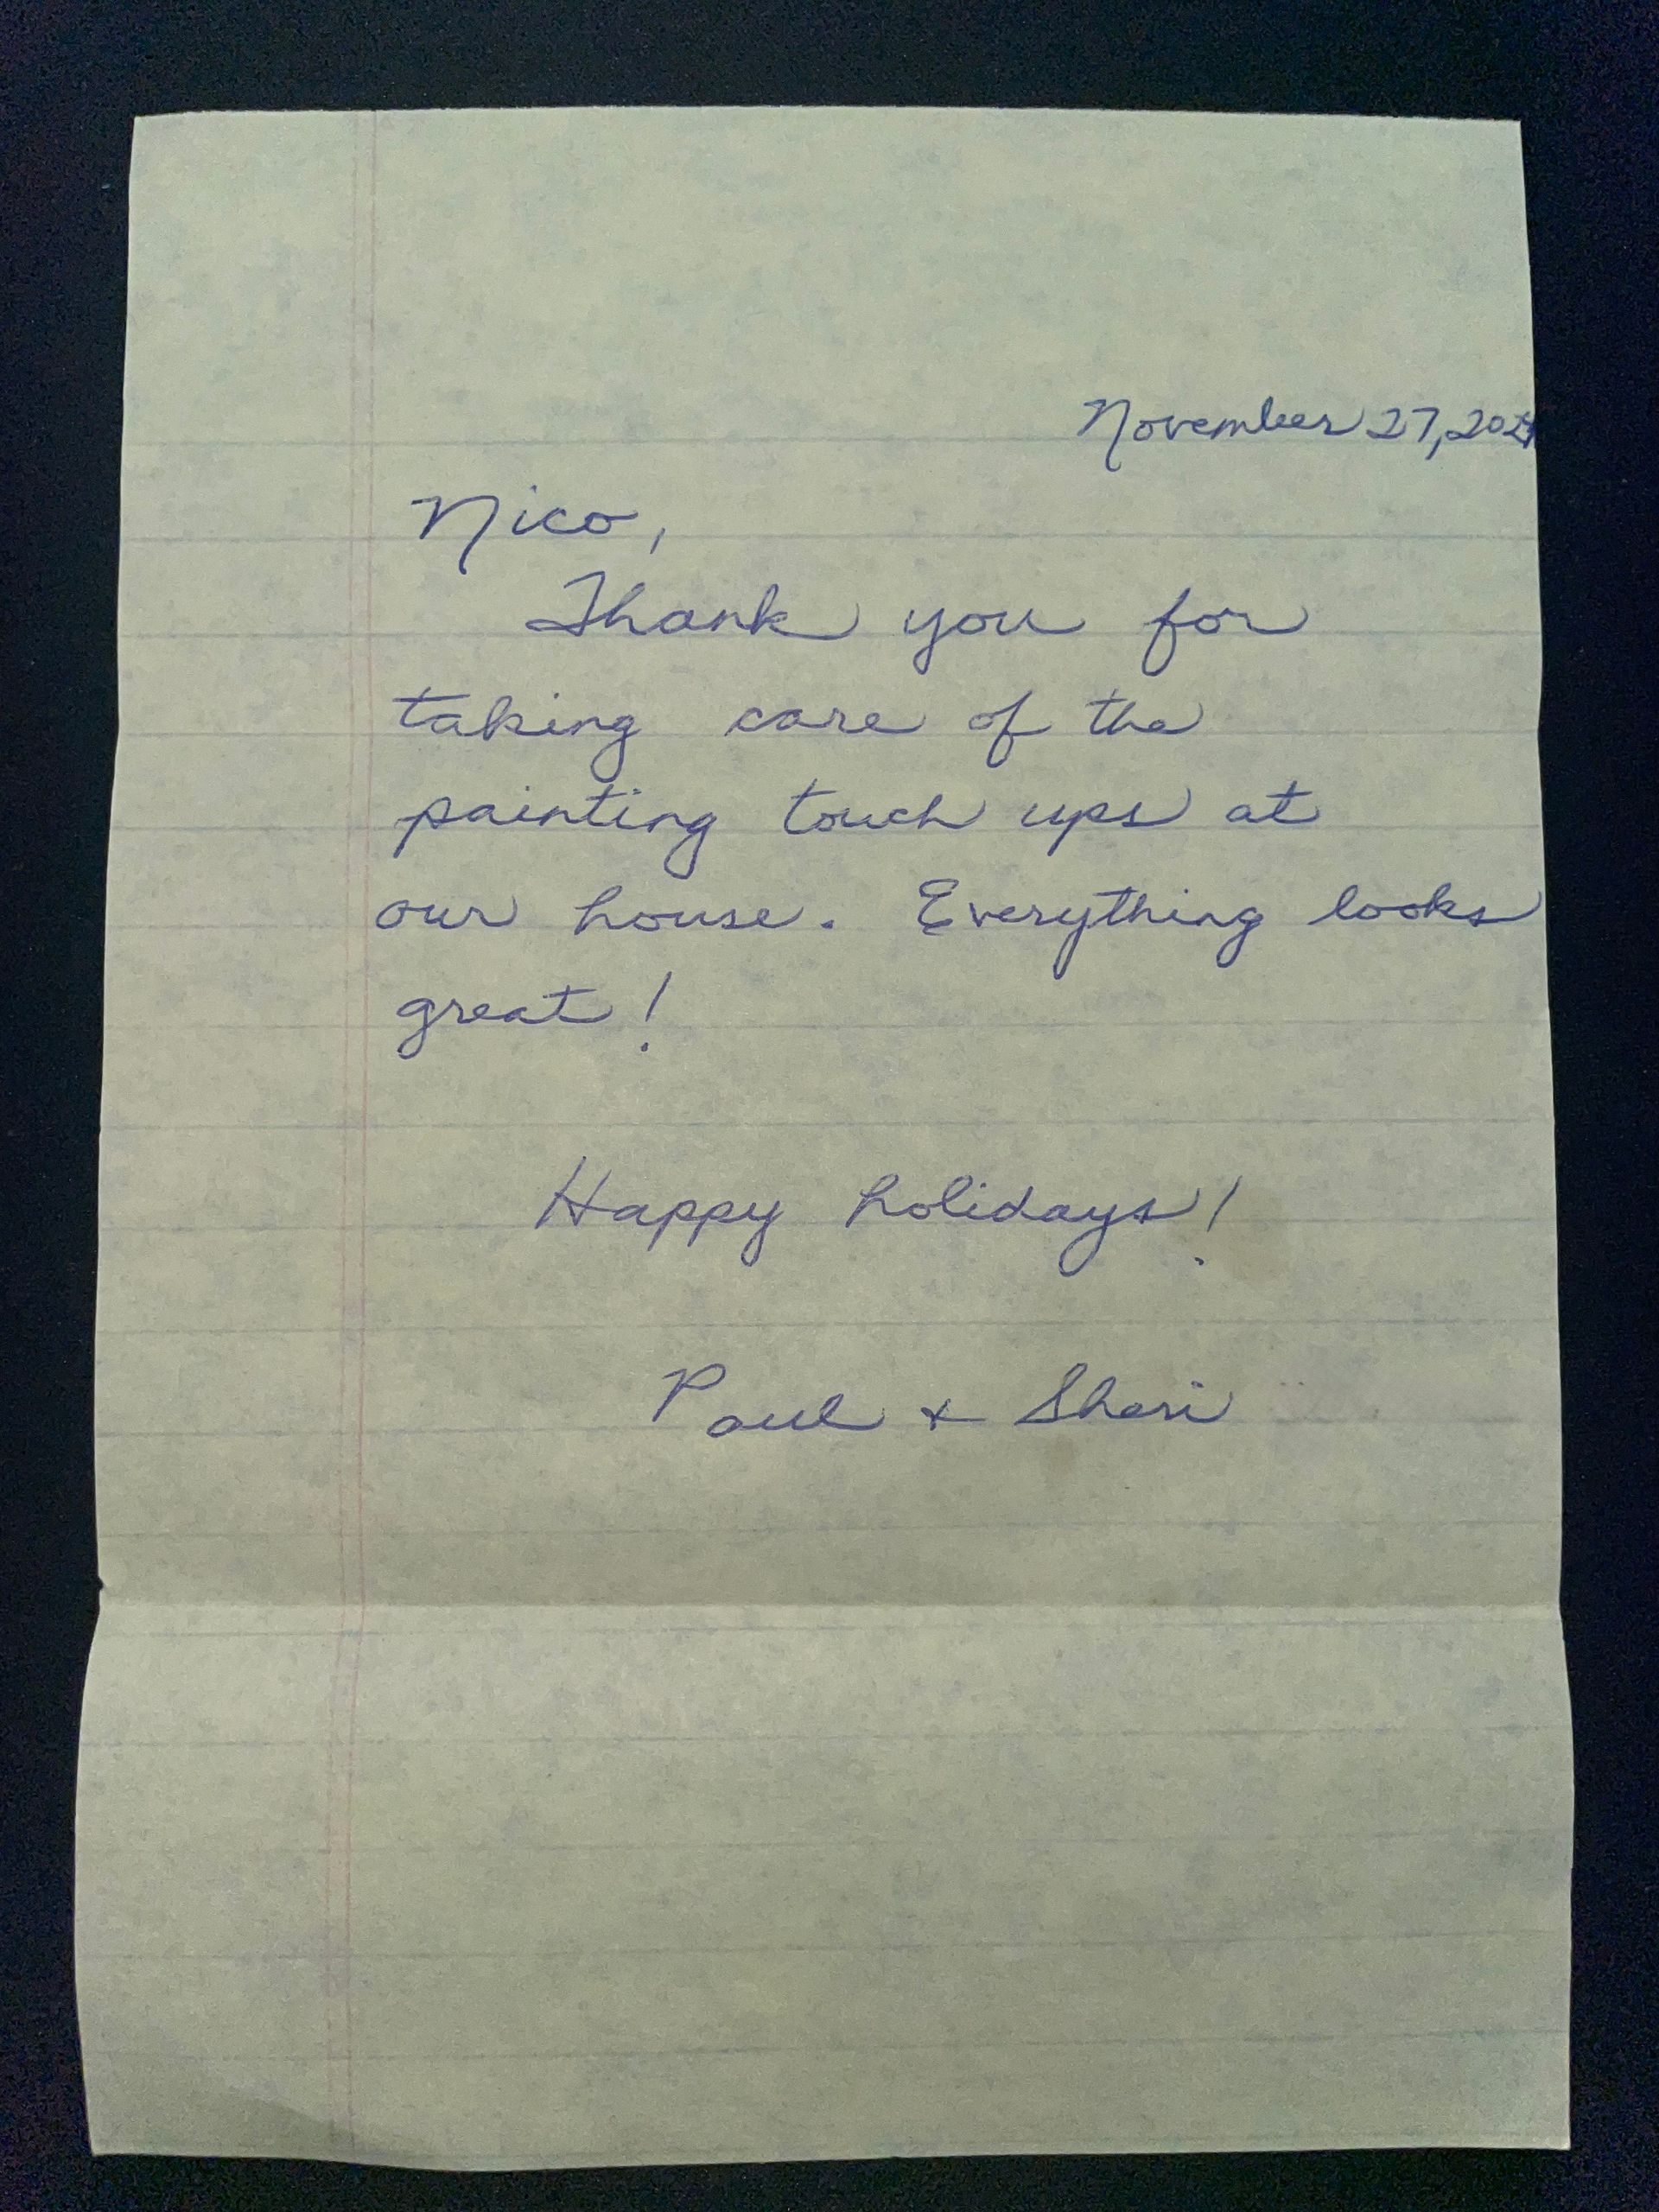 November 27, 2024
Nico,
Thank you for
taking care of the
painting touch ups at
our house. Everything looks
great!
Happy holidays!
Paul + Shari